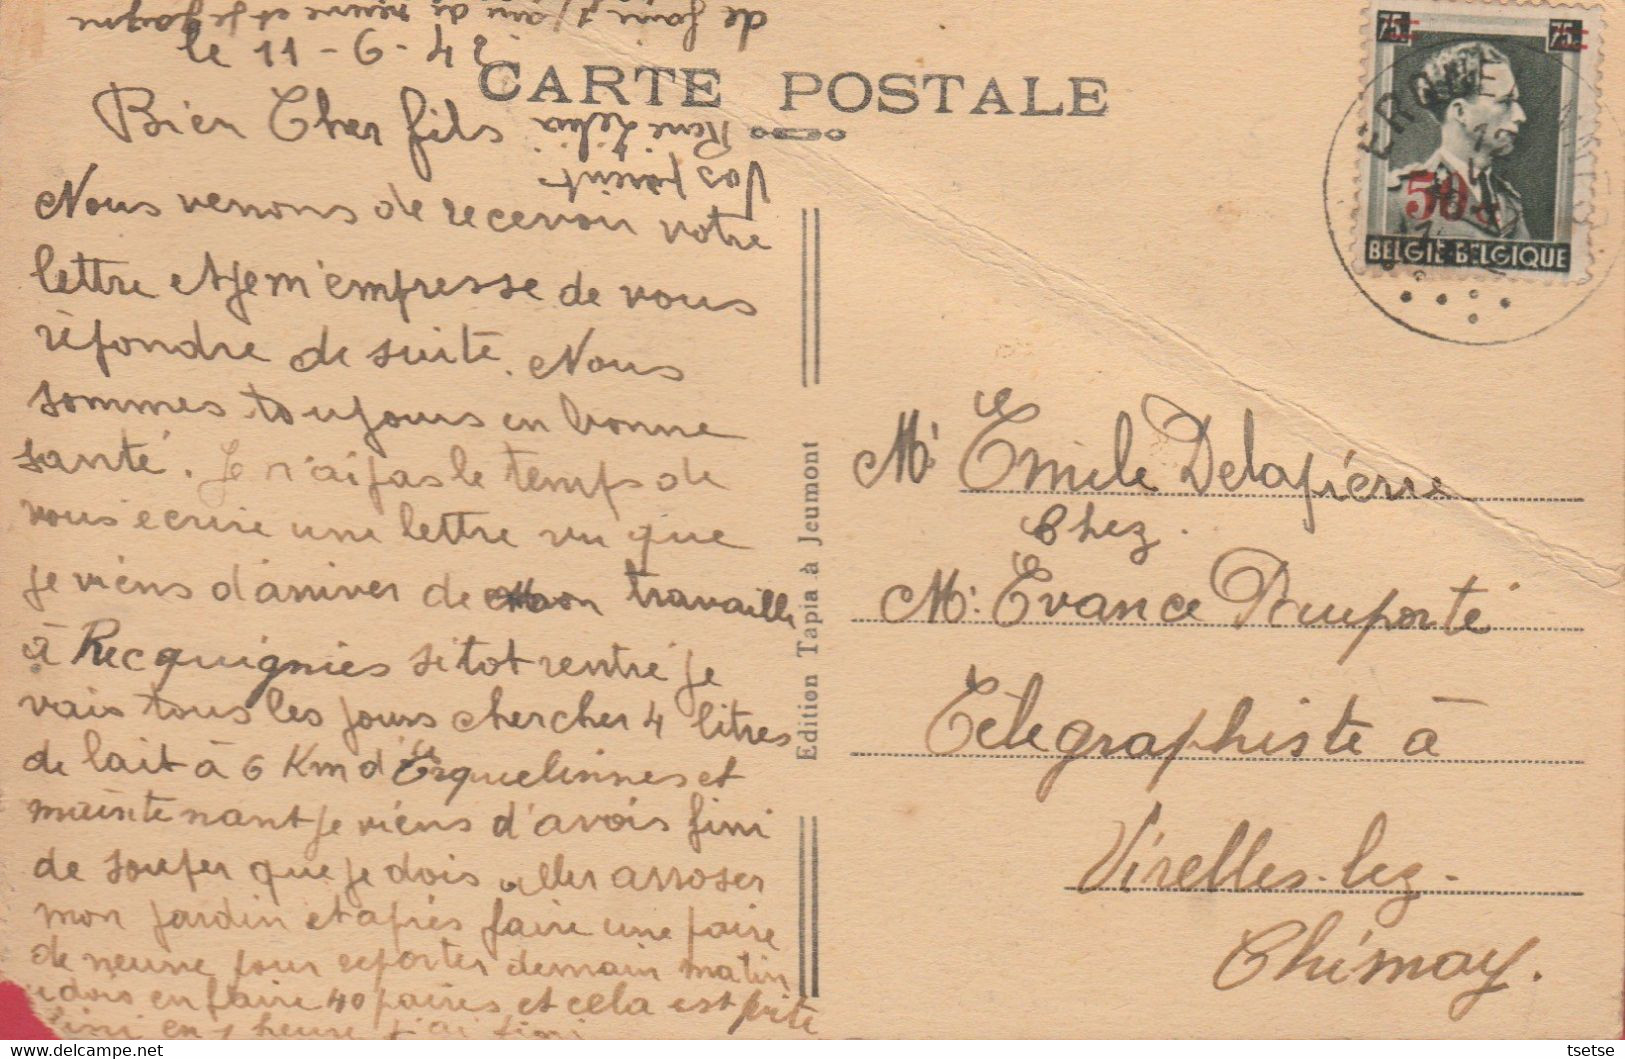 de faire 1/ de neuve et je gagne
le 11-6-42
CARTE POSTALE
Bien Cher fils
Vos parents
René Zélia
Nous venons de recevoir votre
lettre et je m'empresse de vous
répondre de suite. Nous
sommes toujours en bonne
santé. Je n'ai pas le temps de
vous ecrire une lettre vu que
je viens d'arriver de travaille
à Recquignies sitot rentré je
vais tous les jours chercher 4 litres
de lait à 6 Km d'Erquelinnes et
maintenant je viens d'avois fini
de souper que je dois aller arroser
mon jardin et après faire une paire
de neuve pour reporter demain matin
je dois en faire 40 paires et cela est vite
fini en 1 heure j'ai fini
Edition Tapia à Jeumont
75 75
50c
BELGIË-BELGIQUE
ERQUELINNES
Mr Emile Delapierre
Chez.
Mr. Evance Duporté
Télegraphiste à
Virelles-lez-
Chimay.
tsetse